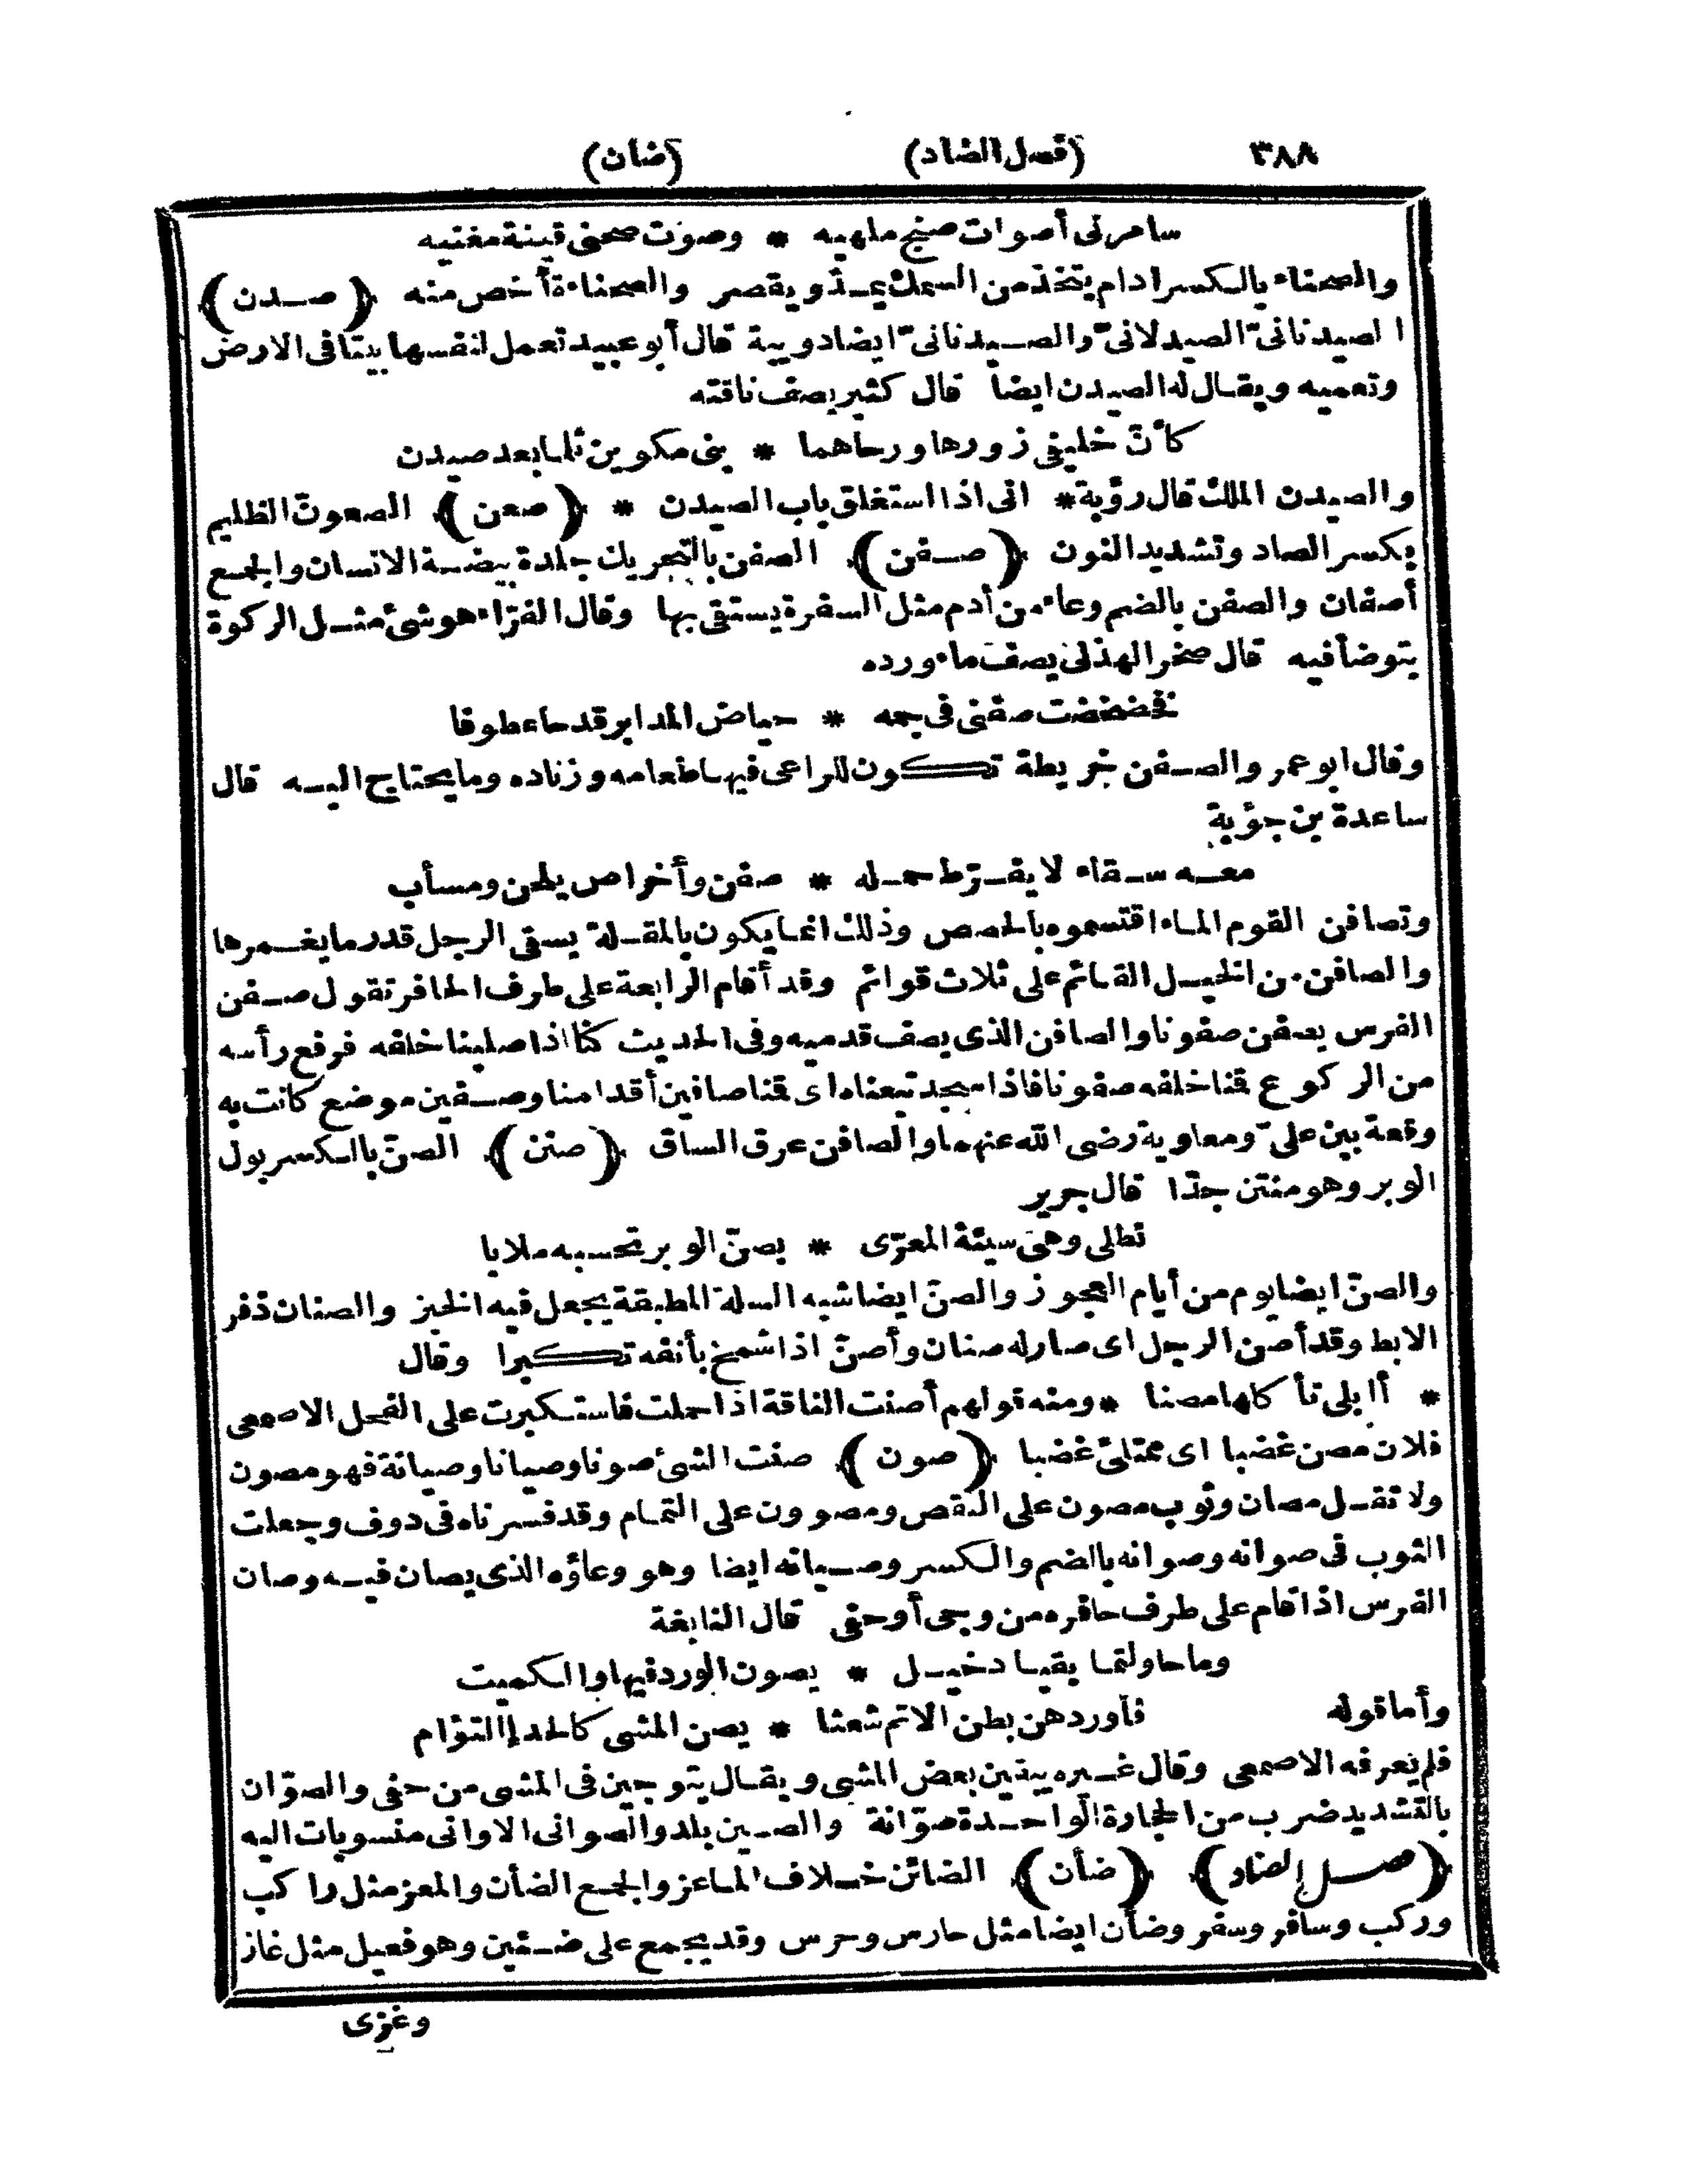 ٣٨٨ (فصل الضاد) (ضان)
سامرنى أصوات صنج ملهيه * وصوت صحنى قينة مغنيه
والصحناء بالكسر ادام يتخذ من السمك يمدّ ويقصر والصحناءة أخص منه ﴿صدن﴾
الصيدنانىّ الصيدلانىّ والصيدنانىّ ايضا دويبة قال أبو عبيد تعمل لنفسها بيتا فى الارض
وتعميه ويقال له الصيدن ايضا قال كثير يصف ناقته
كأنّ خليفى زورها ورحاهما * بنى مكوين ثلما بعد صيدن
والصيدن الملك قال رؤبة * انى اذا استغلق باب الصيدن * ﴿صعن﴾ الصعونّ الظليم
بكسر الصاد وتشديد النون ﴿صفن﴾ الصفن بالتحريك جلدة بيضة الانسان والجمع
أصفان والصفن بالضم وعاء من أدم مثل السفرة يستقى بها وقال الفرّاء هو شئ مثل الركوة
يتوضأ فيه قال صخر الهذلى يصف ماء ورده
فخضخضت صفنى فى جمه * خياض المدابر قدحا عطوفا
وقال ابو عمر والصفن خريطة تكون للراعى فيها طعامه وزناده وما يحتاج اليه قال
ساعدة بن جؤية
معه سقاء لا يفرّط حمله * صفن وأخراص يلحن ومسأب
وتصافن القوم الماء اقتسموه بالحصص وذلك انما يكون بالمقلة يسقى الرجل قدر ما يغمرها
والصافن من الخيل القائم على ثلاث قوائم وقد أقام الرابعة على طرف الحافر تقول صفن
الفرس يصفن صفونا والصافن الذى يصف قدميه وفى الحديث كنّا اذا صلينا خلفه فرفع رأسه
من الركوع قمنا خلفه صفونا فاذا سجد تبعناه اى قمنا صافين أقدامنا وصفين موضع كانت به
وقعة بين علىّ ومعاوية رضى الله عنهما والصافن عرق الساق ﴿صنن﴾ الصنّ بالكسر بول
الوبر وهو منتن جدّا قال جرير
تطلى وهى سيئة المعرّى * بصنّ الوبر تحسبه ملابا
والصنّ ايضا يوم من أيام العجوز والصنّ ايضا شبه السلة المطبقة يجعل فيه الخبز والصنان ذفر
الابط وقد أصن الرجل اى صار له صنان وأصنّ اذا شمخ بأنفه تكبرا وقال
* أابلى تأكلها مصنا * ومنه قولهم أصنت الناقة اذا حملت فاستكبرت على الفحل الاصمعى
فلان مصن غضبا اى ممتلئ غضبا ﴿صون﴾ صنت الشئ صونا وصيانا وصيانة فهو مصون
ولا تقل مصان وثوب مصون على النقص ومصوون على التمام وقد فسرناه فى دوف وجعلت
الثوب فى صوانه وصوانه بالضم والكسر وصيانه ايضا وهو وعاؤه الذى يصان فيه وصان
الفرس اذا قام على طرف حافره من وجى أو حفى قال النابغة
وما حاولتما بقياد خيل * يصون الورد فيها والكميت
وأما قوله فأوردهن بطن الاتم شعثا * يصن المشى كالحدإ التؤام
فلم يعرفه الاصمعى وقال غيره يبقين بعض المشى ويقال يتوجين فى المشى من حفى والصوّان
بالتشديد ضرب من الحجارة الواحدة صوّانة والصين بلد والصوانى الاوانى منسوبات اليه
﴿فصل الضاد﴾ ﴿ضأن﴾ الضائن خلاف الماعز والجمع الضأن والمعز مثل راكب
وركب وسافر وسفر وضأن ايضا مثل حارس وحرس وقد يجمع على ضئين وهو فعيل مثل غاز
وغزى